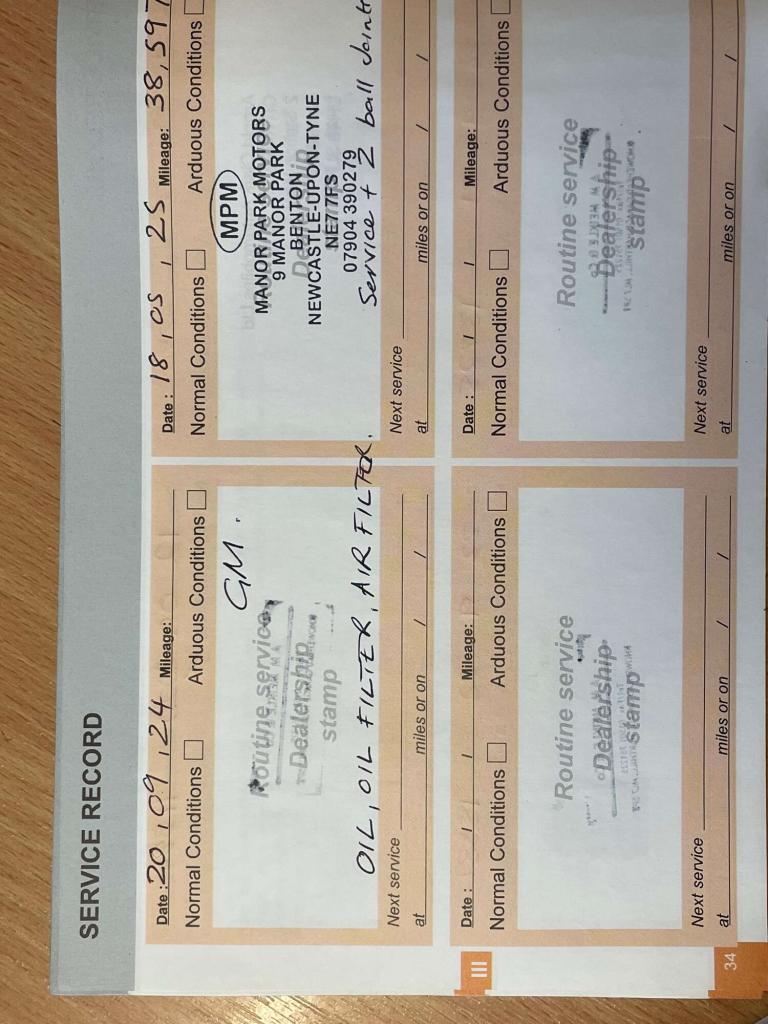 SERVICE RECORD
Date : 20 , 09 , 24 Mileage:
Normal Conditions Arduous Conditions
GM.
Routine service
Dealership
stamp
OIL, OIL FILTER, AIR FILTER.
Next service
at miles or on / /
Date : 18 , 05 , 25 Mileage: 38,597
Normal Conditions Arduous Conditions
MPM
MANOR PARK MOTORS
9 MANOR PARK
BENTON
NEWCASTLE-UPON-TYNE
NE7 7FS
07904 390279
Service + 2 ball joint
Next service
at miles or on / /
Date : / / Mileage:
Normal Conditions Arduous Conditions
Routine service
Dealership
stamp
Next service
at miles or on / /
Date : / / Mileage:
Normal Conditions Arduous Conditions
Routine service
Dealership
stamp
Next service
at miles or on / /
III
34